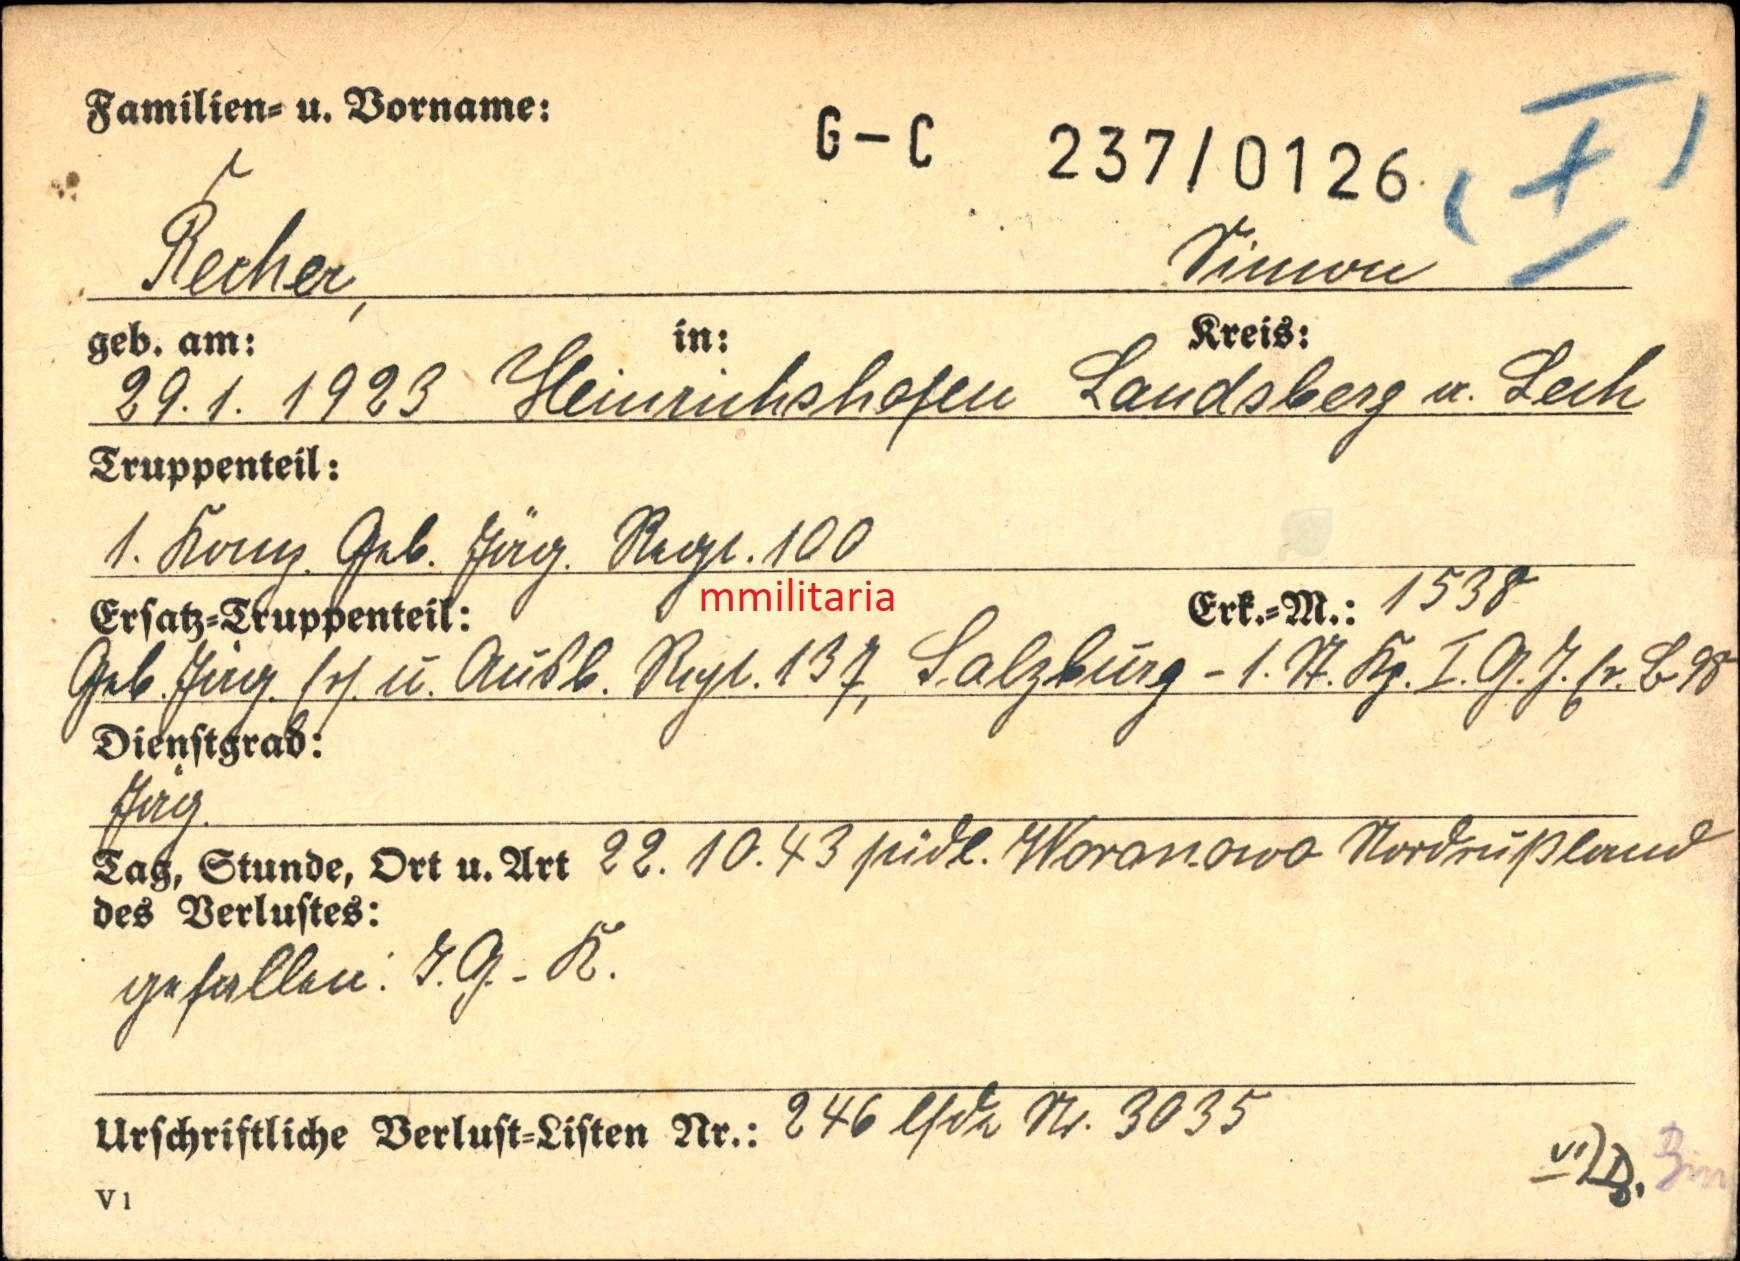 Familien- u. Vorname:
G-C 237/0126 (I)
Recher, Simon
geb. am: in: Kreis:
29.1.1923 Heinrichshofen Landsberg a. Lech
Truppenteil:
1. Komp. Geb. Jäg. Regt. 100
mmilitaria
Ersatz-Truppenteil: Erk.-M.: 1538
Geb. Jäg. Ers. u. Ausb. Regt. 137, Salzburg - 1. St. Kp. I. G. J. Er. B 98
Dienstgrad:
Jäg.
Tag, Stunde, Ort u. Art 22.10.43 südl. Woronowo Nordrußland
des Verlustes:
gefallen: I.G.-K.
Urschriftliche Verlust-Listen Nr.: 246 lfde Nr. 3035
V1